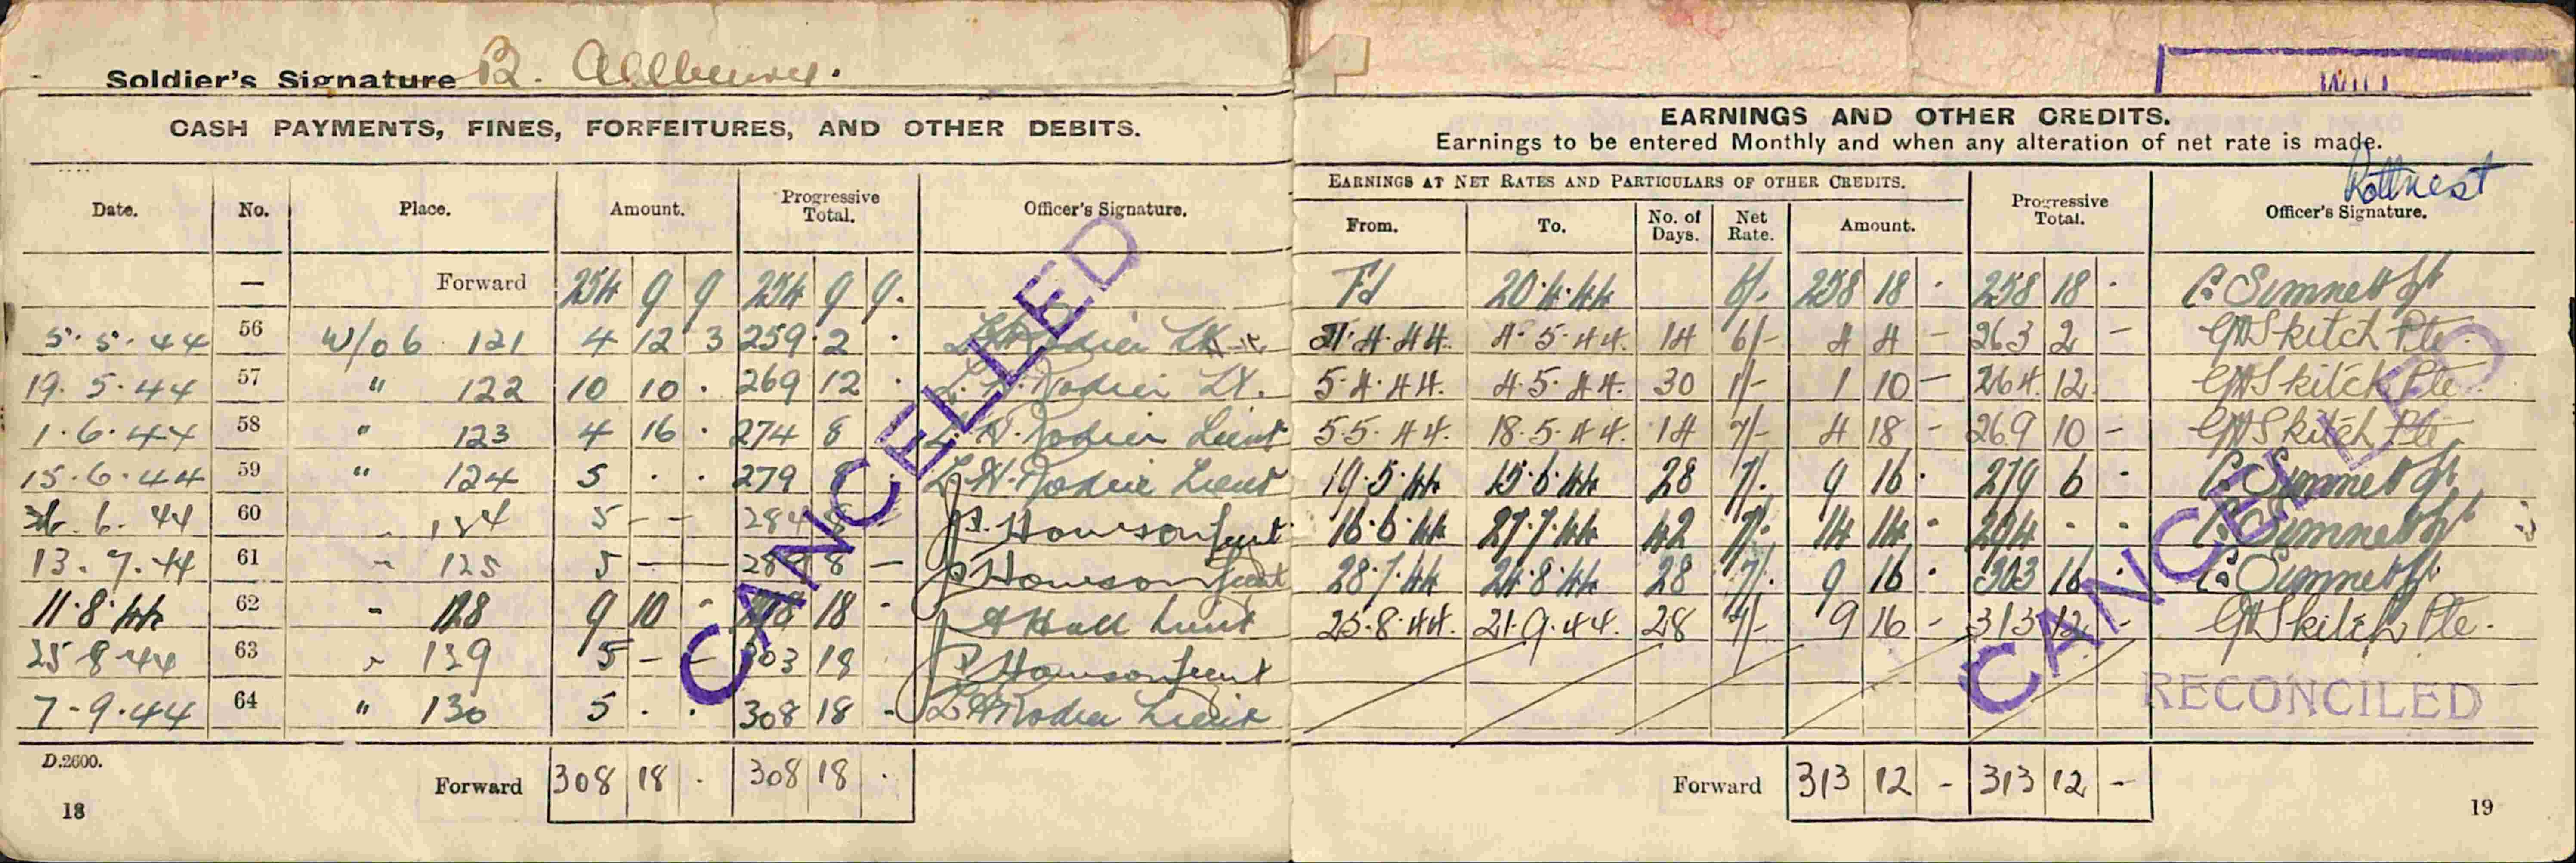 Soldier's Signature B.
CASH PAYMENTS, FINES, FORFEITURES, AND OTHER DEBITS.
Date. No. Place. Amount. Progressive Total. Officer's Signature.
— Forward 254 9 9 254 9 9.
5.5.44 56 W/o 6 121 4 12 3 259 2 . Lt
19.5.44 57 " 122 10 10 . 269 12 . Lt.
1.6.44 58 " 123 4 16 . 274 8 L.H. Rodier Lieut
15.6.44 59 " 124 5 . . 279 8 . L.H. Rodier Lieut
6.44 60 " 5 – – 284 8 – Howson Lieut
13.7.44 61 " 125 5 – – 8 – Howson Lieut
11.8.44 62 " 128 9 10 - 18 - Hall Lieut
25 8 44 63 " 129 5 – – 303 18 Howson Lieut
7-9-44 64 " 130 5 . . 308 18 - L H Rodier Lieut
D.2600. Forward 308 18 . 308 18 .
18
CANCELLED
WILL
EARNINGS AND OTHER CREDITS.
Earnings to be entered Monthly and when any alteration of net rate is made.
Rottnest
EARNINGS AT NET RATES AND PARTICULARS OF OTHER CREDITS.
From. To. No. of Days. Net Rate. Amount. Progressive Total. Officer's Signature.
Fd 20.4.44 6/. 258 18 . 258 18 . Sumner
21.4.44. 4.5.44. 14 6/- 4 4 – 263 2 – GHSkitch Pte.
5.4.44. 4.5.44. 30 1/- 1 10 – 264 12. GHSkitch Pte.
5.5.44. 18.5.44. 14 7/- 4 18 – 269 10 – GHSkitch Pte.
19.5.44 15.6.44 28 7/. 9 16 . 279 6 . Sumner
16.6.44 27.7.44 42 7/. 14 14 - 294 - . Sumner
28.7.44 24.8.44 28 7/. 9 16 . 303 16 . Sumner
25.8.44. 21.9.44. 28 7/- 9 16 – 313 12 – GHSkitch Pte.
RECONCILED
Forward 313 12 – 313 12 –
19
CANCELLED